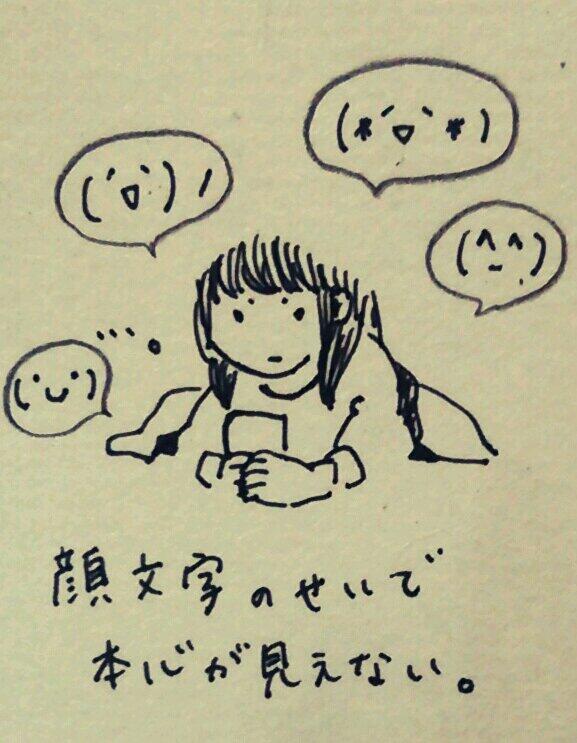 (*´▽`*)
(´▽`)ノ
(^_^)
…。
(・◡・)
顔文字のせいで
本心が見えない。